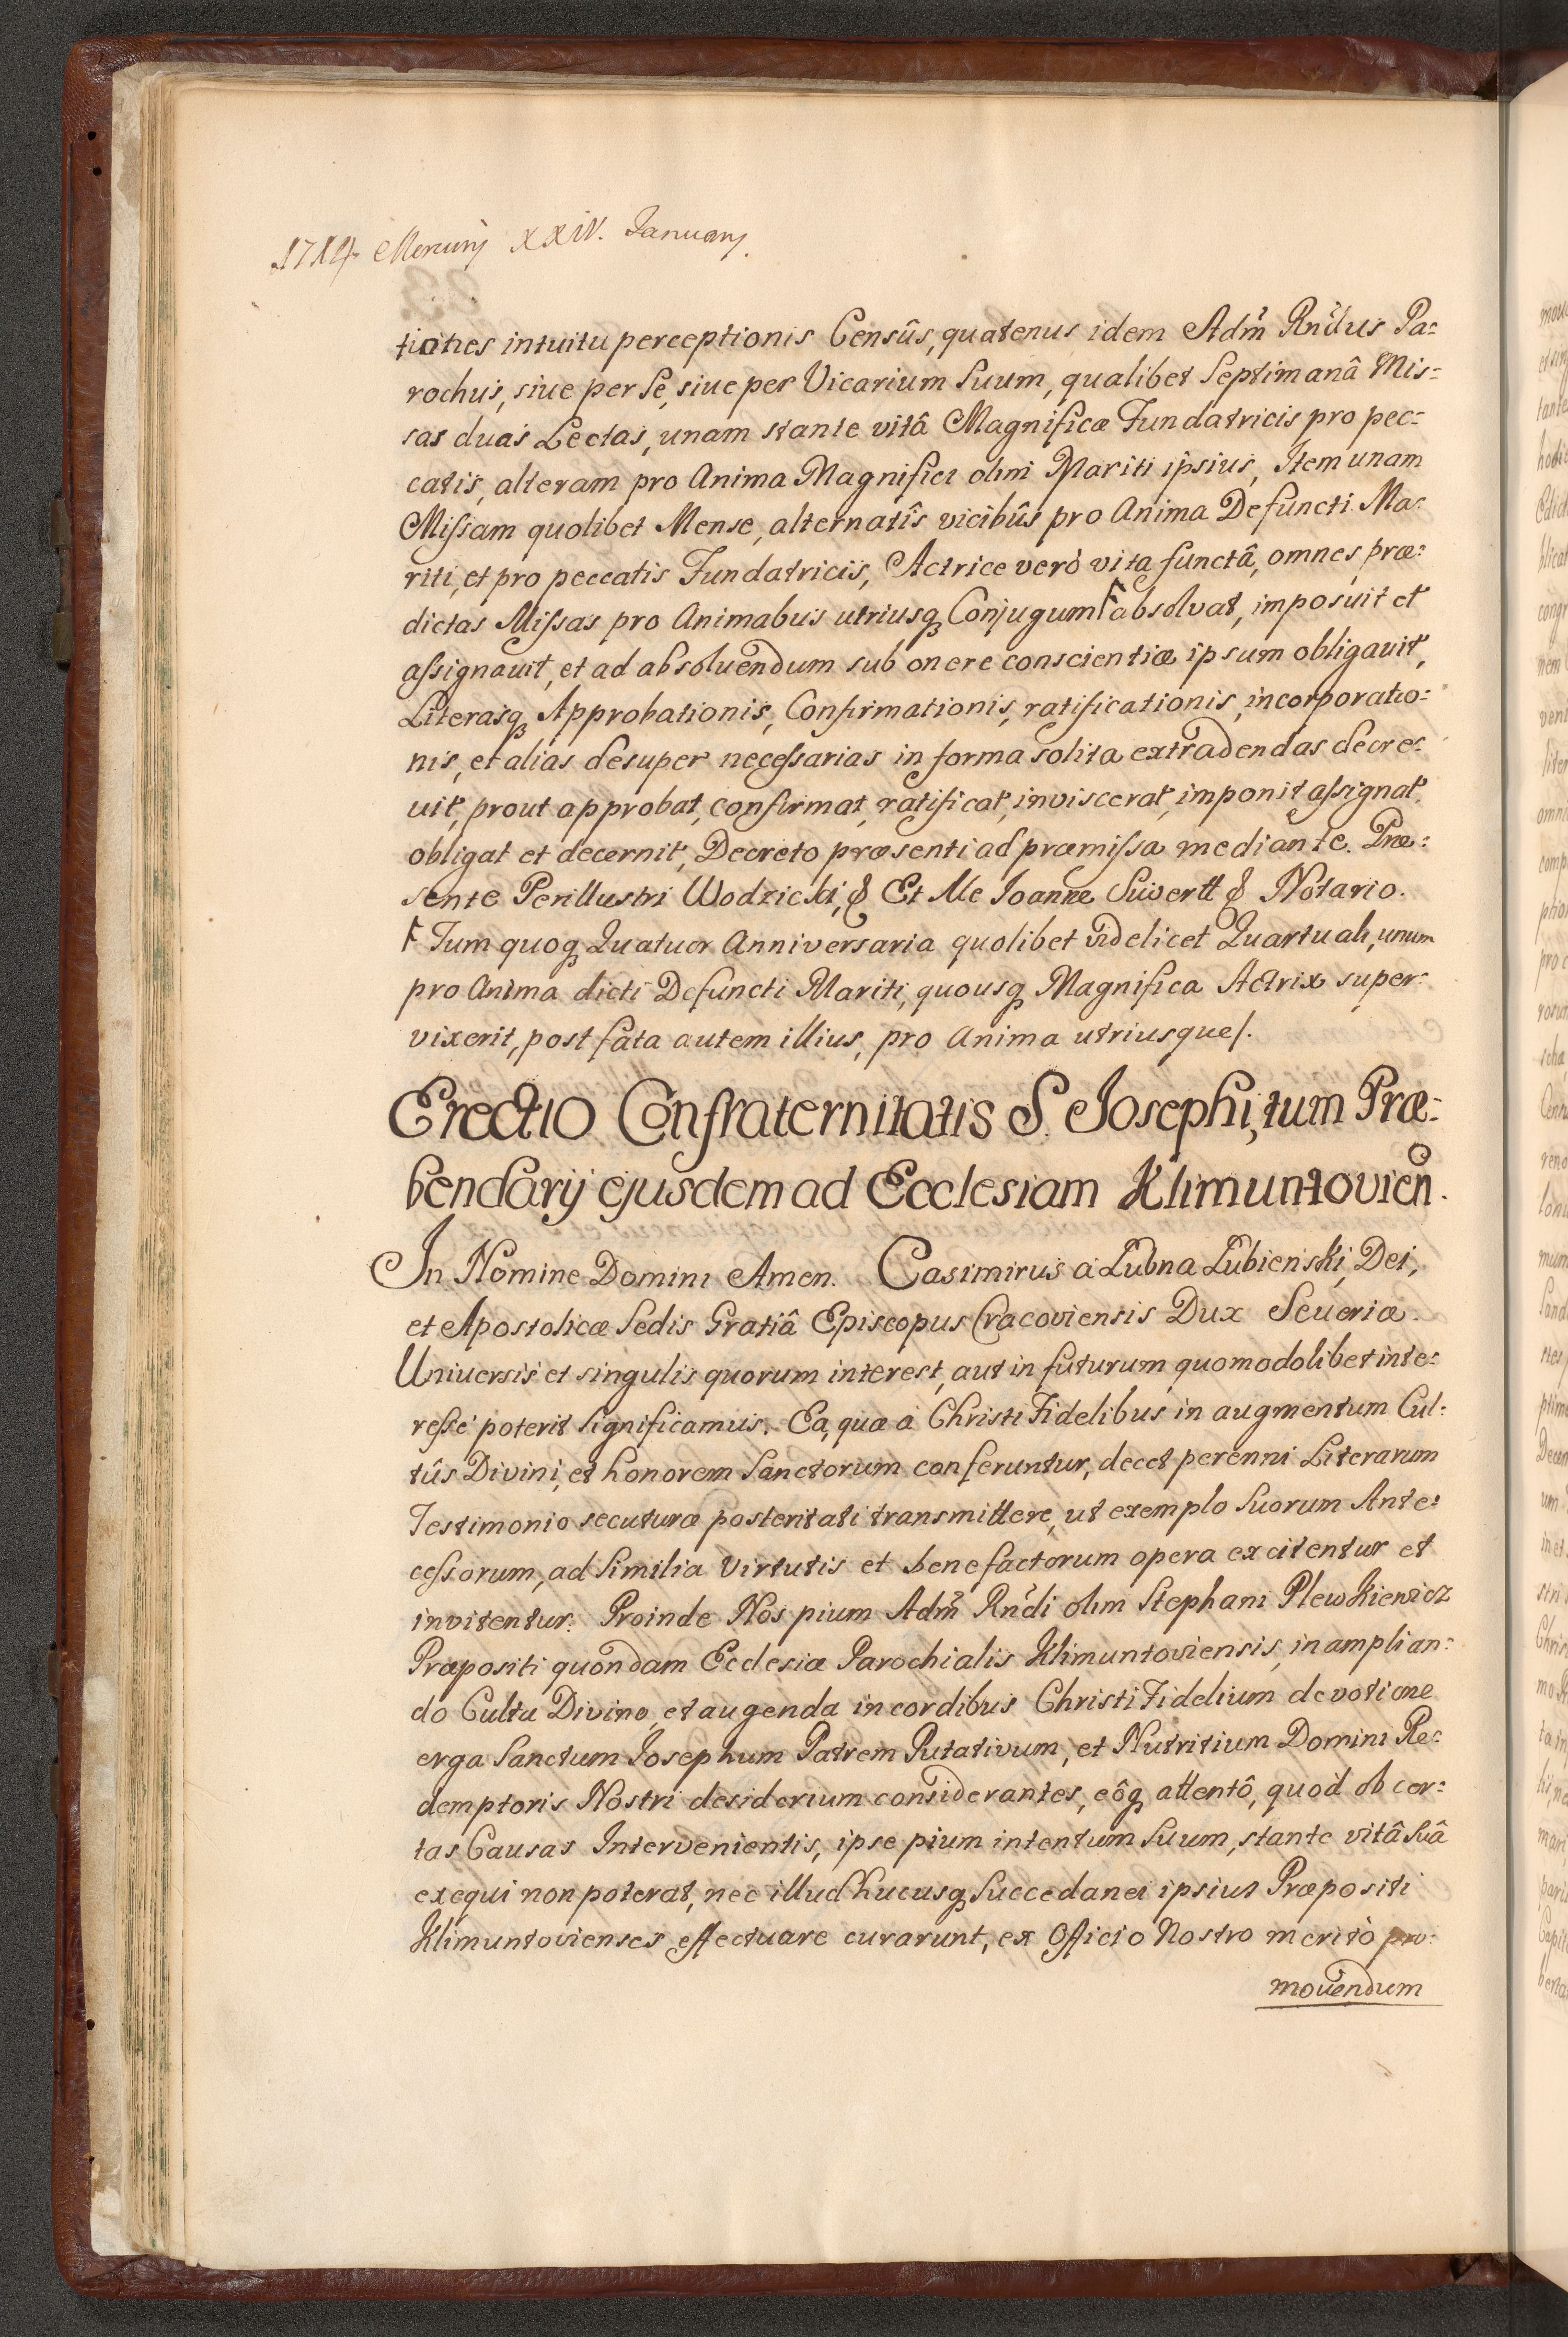 1714 Mercurij XXIV. Januarij.
tiones intuitu perceptionis Censûs, quatenus idem Adm̃ Rñdus Pa=
rochus, siue per Se, siue per Vicarium Suum, qualibet Septimanâ Mis=
sas duas Lectas, unam stante vitâ Magnificæ Fundatricis pro pec=
catis, alteram pro Anima Magnifici olim Mariti ipsius, Item unam
Missam quolibet Mense, alternatîs vicibûs pro Anima Defuncti Ma=
riti, et pro peccatis Fundatricis, Actrice verò vita functâ, omnes præ=
dictas Missas pro Animabus utriusq Conjugum Ⱶ absolvat, imposuit et
assignauit, et ad absoluendum sub onere conscientiæ ipsum obligauit,
Literasq Approbationis, Confirmationis, ratificationis, incorporatio=
nis, et alias desuper necessarias in forma solita extradendas decre=
uit, prout approbat, confirmat, ratificat, inviscerat, imponit assignat,
obligat et decernit, Decreto præsenti ad præmissa mediante. Præ=
sente Perillustri Wodzicki, & Et Me Joanne Suwertt & Notario.
Ⱶ Tum quoq Quatuor Anniversaria quolibet videlicet Quartuali, unum
pro Anima dicti Defuncti Mariti, quousq Magnifica Actrix super=
vixerit, post fata autem illius, pro Anima utriusque/.
Erectio Confraternitatis S. Josephi, tum Præ=
bendarij ejusdem ad Ecclesiam Klimuntovieñ.
In Nomine Domini Amen. Casimirus à Lubna Lubienski, Dei,
et Apostolicæ Sedis Gratiâ Episcopus Cracoviensis Dux Seueriæ.
Uniuersis et singulis quorum interest, aut in futurum quomodolibet inte=
resse poterit significamus. Ea, quæ à Christi Fidelibus in augmentum Cul=
tûs Divini, et honorem Sanctorum conferuntur, decet perenni Literarum
Testimonio secuturæ posteritati transmittere, ut exemplo Suorum Ante=
cessorum, ad Similia Virtutis et benefactorum opera excitentur et
invitentur. Proinde Nos pium Adm̃ Rñdi olim Stephani Plewkiewicz
Præpositi quondam Ecclesiæ Parochialis Klimuntoviensis, in amplian=
do Cultu Divino, et augenda in cordibus Christi Fidelium devotione
erga Sanctum Josephum Patrem Putativum, et Nutritium Domini Re=
demptoris Nostri desiderium considerantes, eôq attentô, quod ob cer=
tas Causas Intervenientis, ipse pium intentum Suum, stante vitâ Suâ
exequi non poterat, nec illud hucusq Succedanei ipsius Præpositi
Klimuntovienses effectuare curarunt, ex Officio Nostro meritò pro=
mouendum